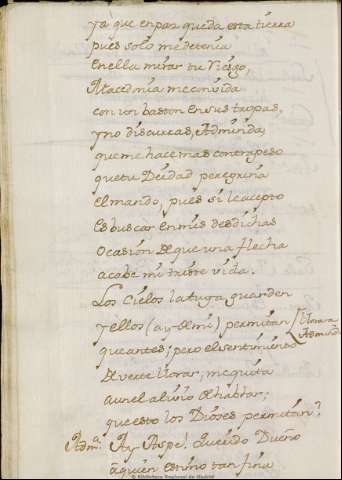 ya que en paz queda esta tierra
pues solo me detenia
en ella mirar tu riesgo,
Macedonia me convida
con un baston en sus tropas,
y no discurras, Admirida,
que me hace mas contrapeso
que tu Deidad peregrina
el mando, pues si le acepto
es buscar en mis desdichas
ocasion de que una flecha
acabe mi triste vida.
Los Cielos la tuya guarden
y ellos (ay de mi) permitan
Llorara
Admirᵃ
que antes; pero el sentimiento
de verte llorar, me quita
aun el alivio de hablar;
que esto los Dioses permitan?
Admᵃ. Ay Aspel, Querido Dueño
à quien estimo tan fina
© Biblioteca Regional de Madrid